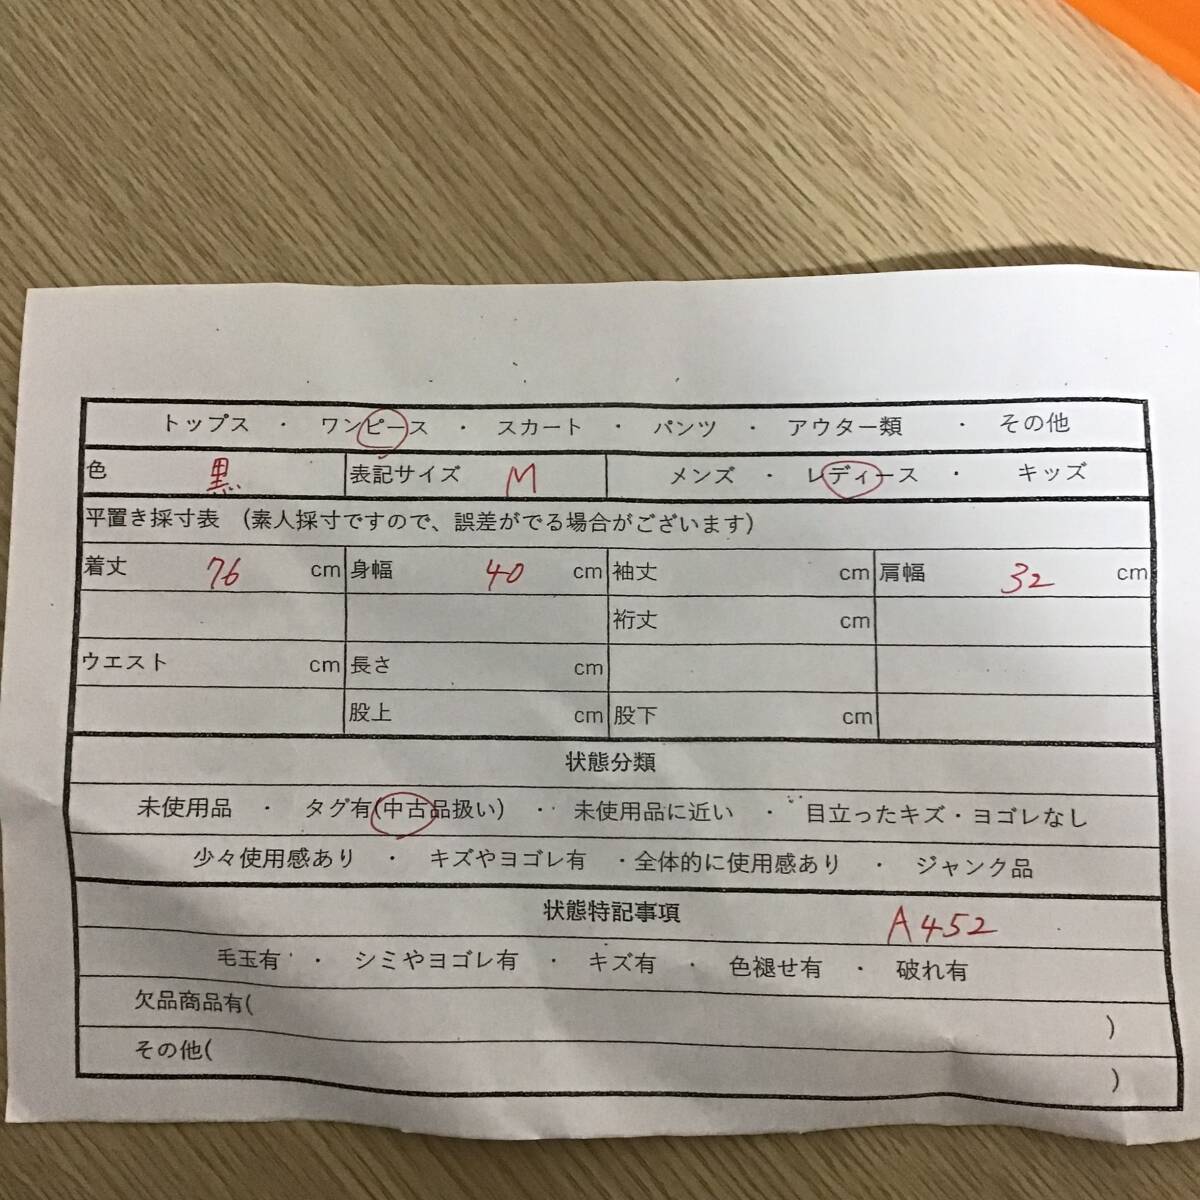 トップス ・ ワンピース ・ スカート ・ パンツ ・ アウター類 ・ その他
色 黒 表記サイズ M メンズ ・ レディース ・ キッズ
平置き採寸表 (素人採寸ですので、誤差がでる場合がございます)
着丈 76 cm 身幅 40 cm 袖丈 cm 肩幅 32 cm
裄丈 cm
ウエスト cm 長さ cm
股上 cm 股下 cm
状態分類
未使用品 ・ タグ有(中古品扱い) ・ 未使用品に近い ・ 目立ったキズ・ヨゴレなし
少々使用感あり ・ キズやヨゴレ有 ・全体的に使用感あり ・ ジャンク品
状態特記事項 A452
毛玉有 ・ シミやヨゴレ有 ・ キズ有 ・ 色褪せ有 ・ 破れ有
欠品商品有( )
その他( )